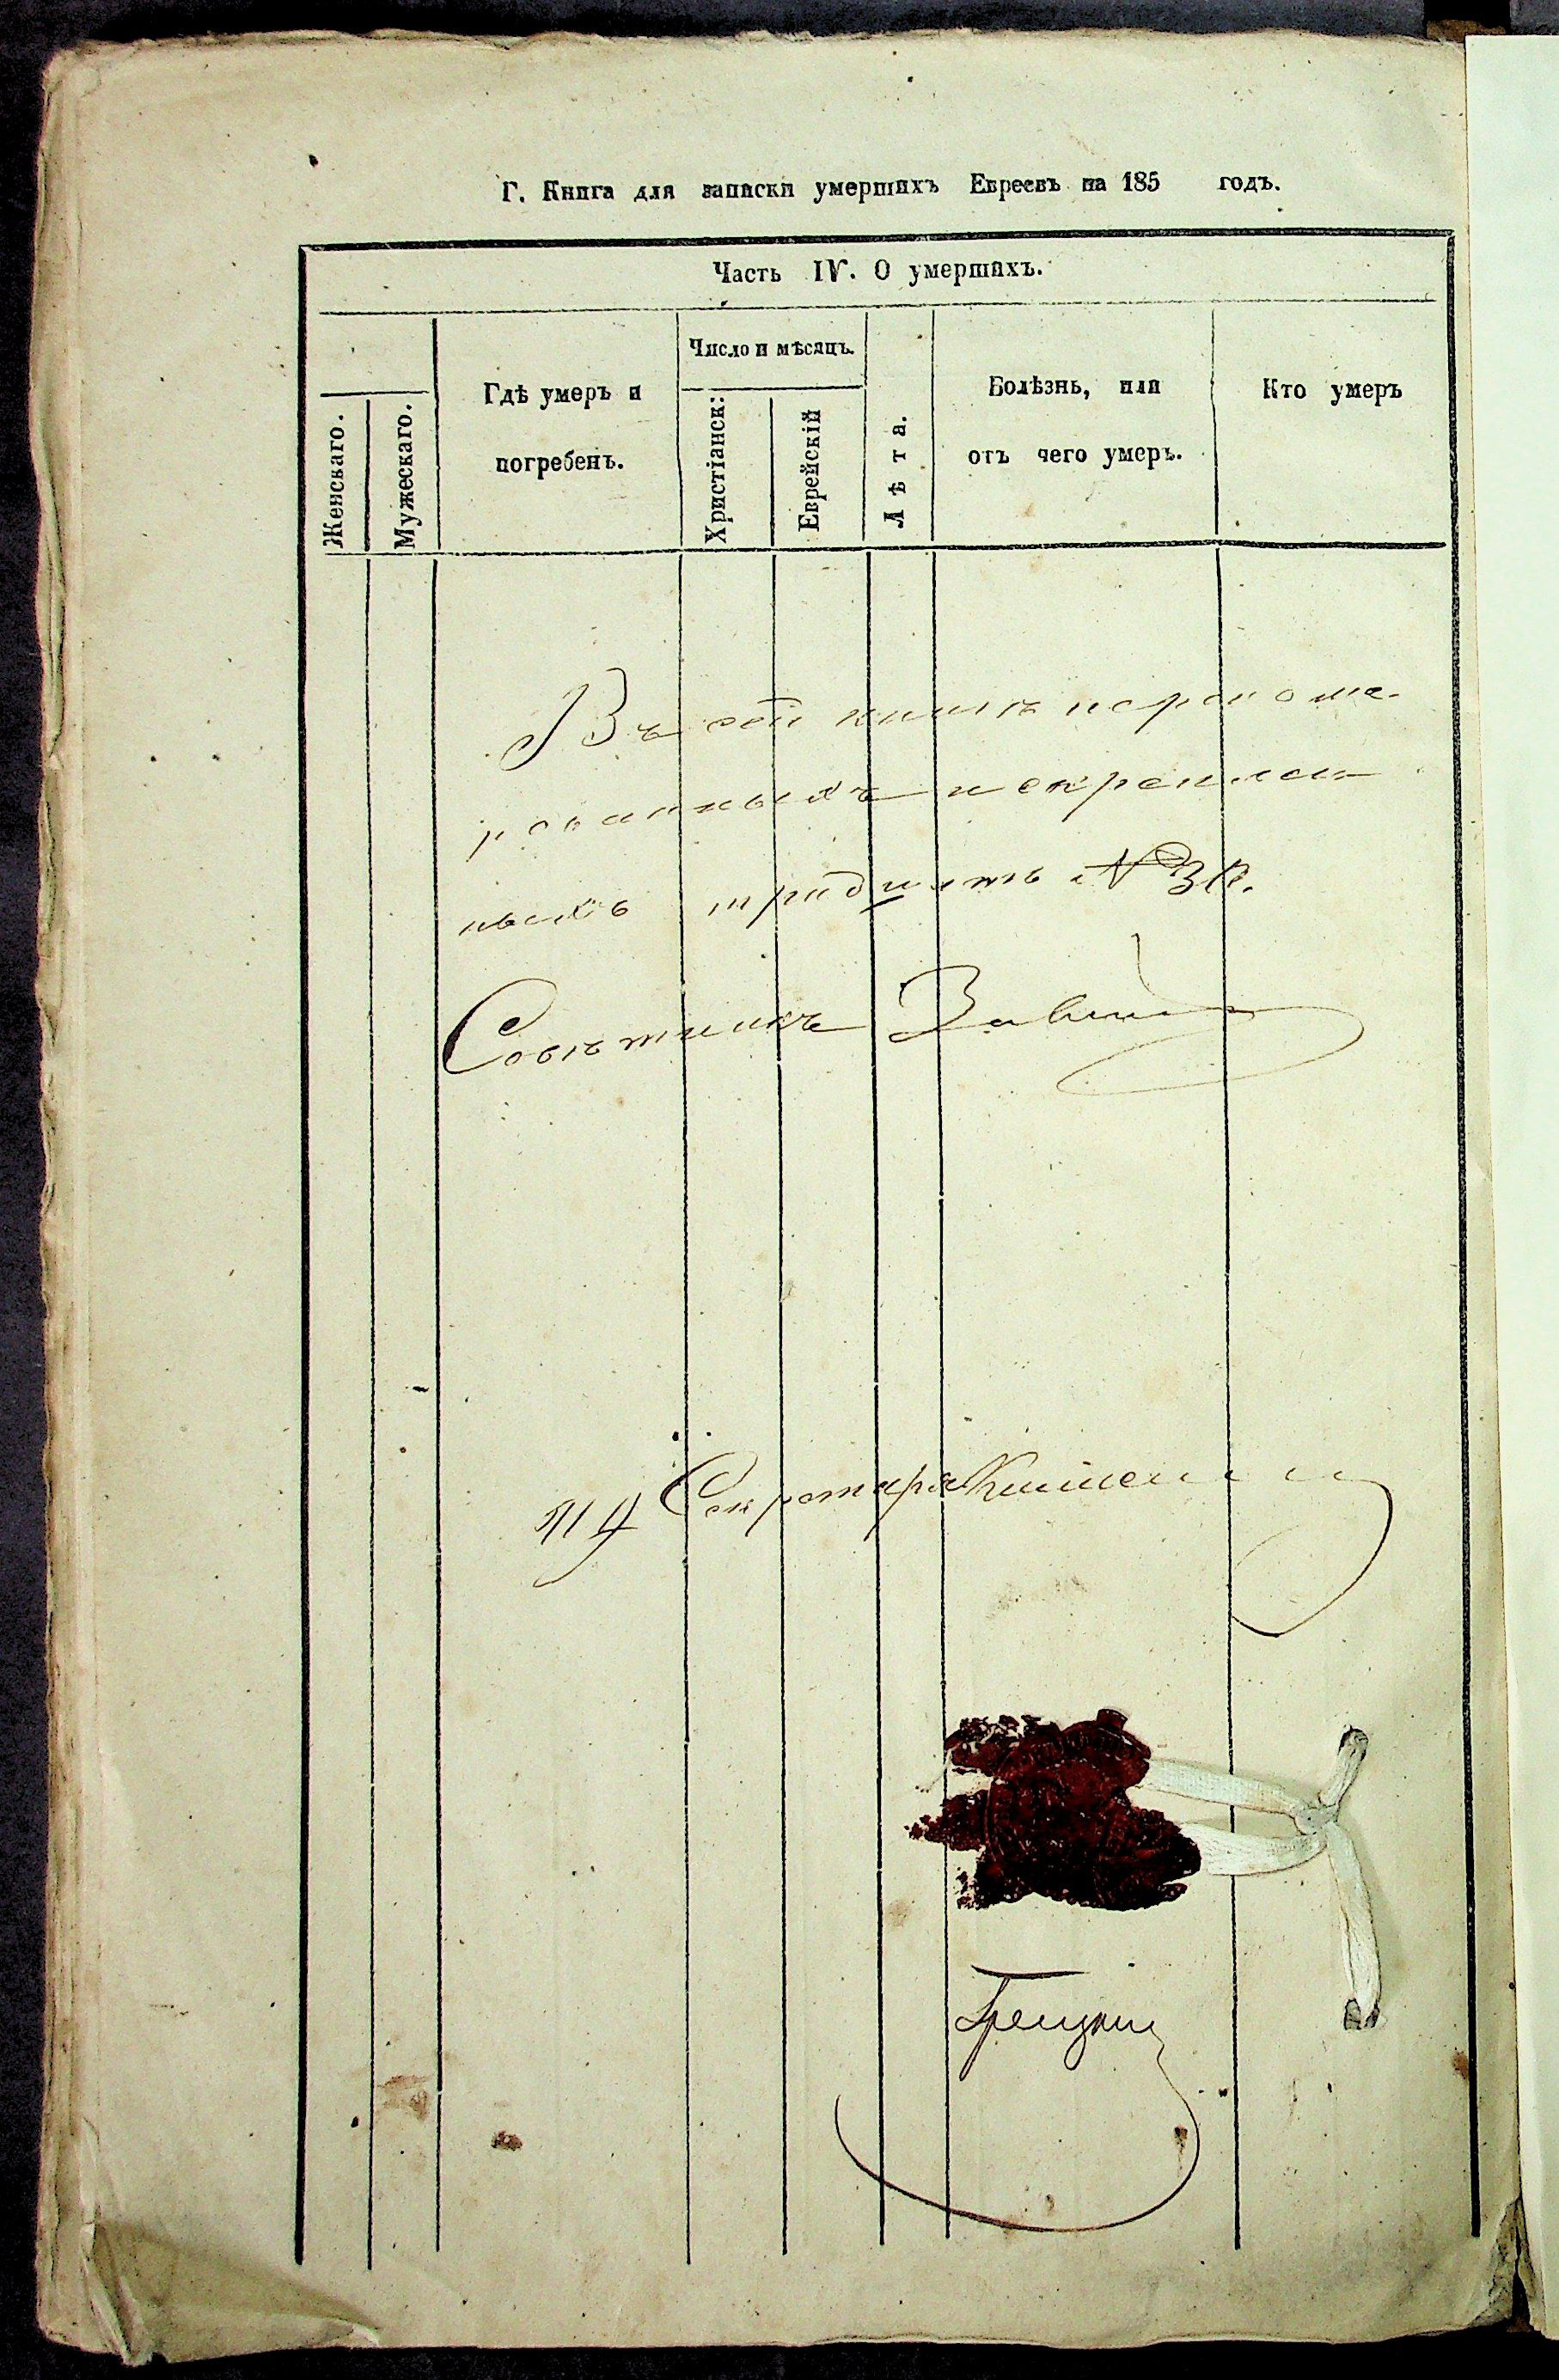 Г. Книга для записки умершихъ Евреевъ на 185 годъ.
Часть IV. О умершихъ.
Женскаго.
Мужескаго.
Гдѣ умеръ и
погребенъ.
Число и мѣсяцъ.
Христіанск:
Еврейскій
Лѣта.
Болѣзнь, или
отъ чего умеръ.
Кто умеръ
Въ сей книгѣ перенуме-
рованныхъ и скреплен
ныхъ тридцать № 30.
Совѣтникъ
Секретаря